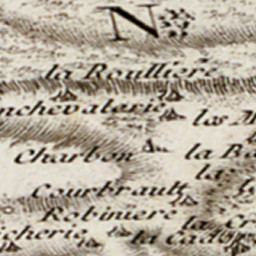 N
la Roulliere
nchevalerie
las M
Charbon
la Ba
la
Courbrault
Robiniere
icheris
la Cr
la Cad